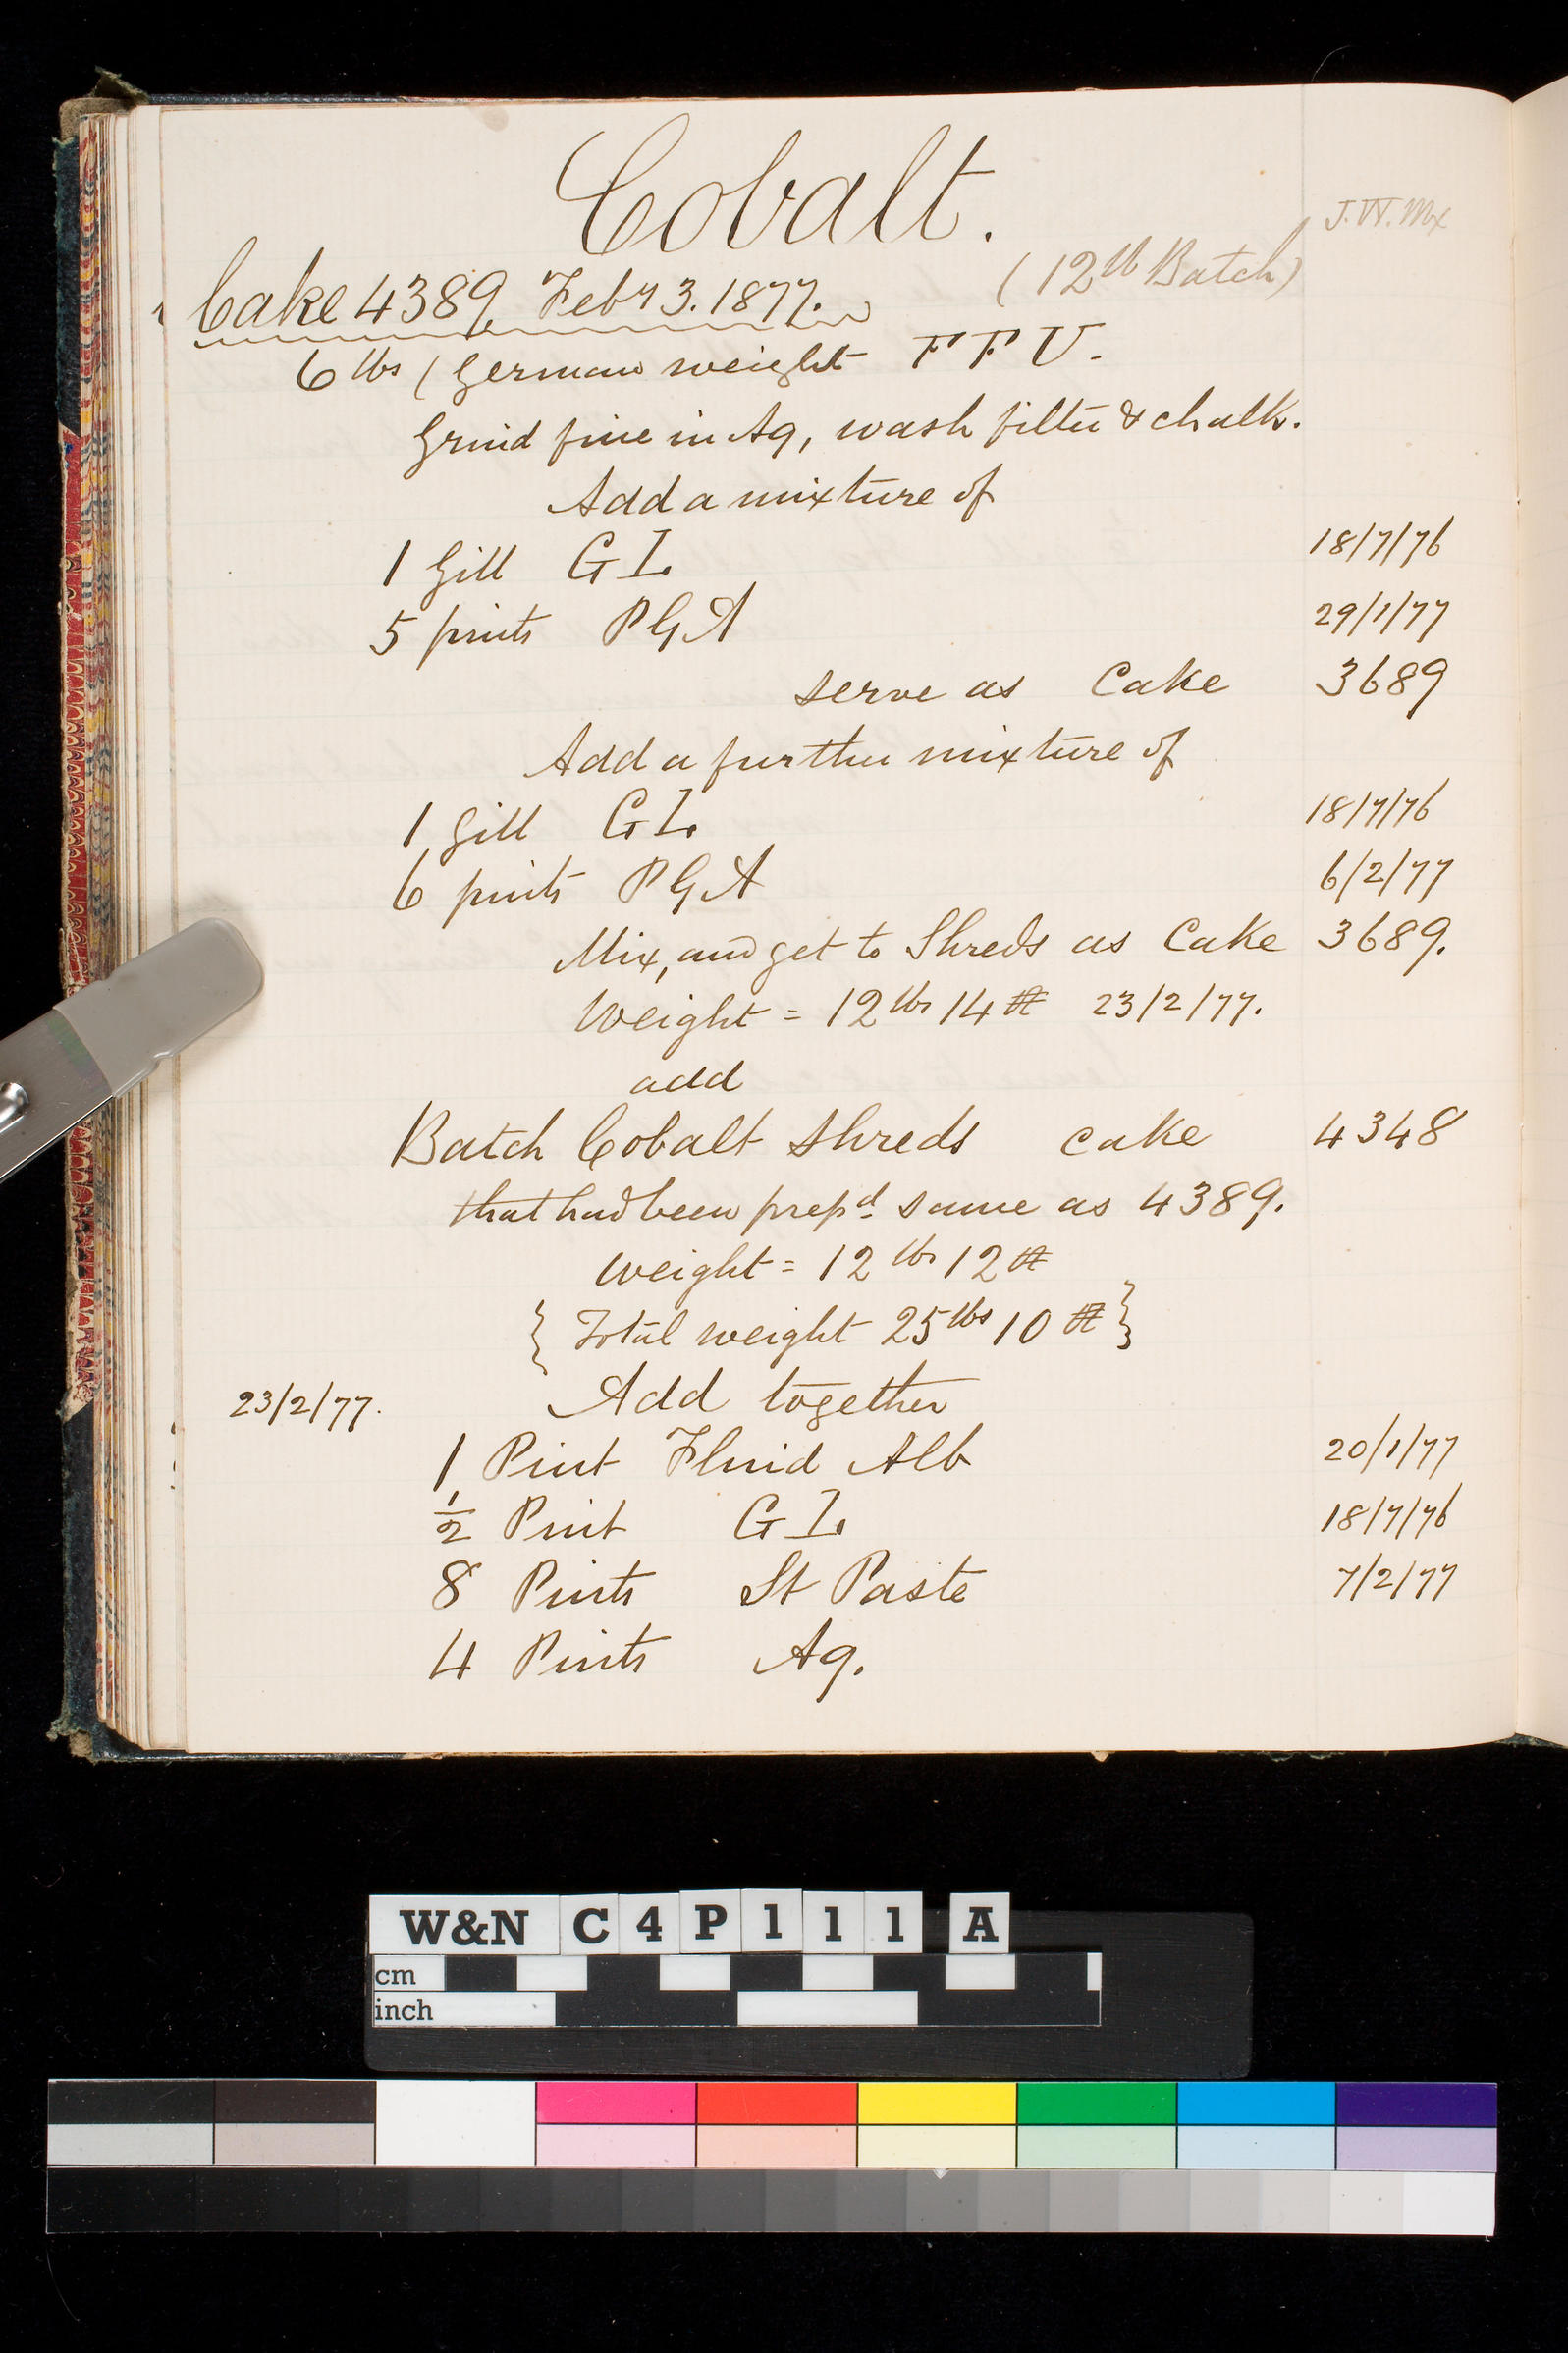 Cobalt.
J. W. Mx
(12th Batch)
Cake 4389 Feby 3. 1877.
6 lbs (German weight F F U.
Grind fine in Aq, wash filter & chalk.
Add a mixture of
1 Gill G L. 18/7/76
5 pints P G A 29/1/77
serve as Cake 3689
Add a further mixture of
1 Gill G L. 18/7/76
6 pints P G A 6/2/77
Mix, and get to Shreds as Cake 3689.
Weight = 12 lbs 14 23/2/77.
add
Batch Cobalt Shreds cake 4348
that had been prepd. same as 4389.
Weight = 12 lbs 12
{ Total weight 25 lbs 10 }
23/2/77. Add together
1 Pint Fluid Alb 20/1/77
1/2 Pint G L. 18/7/76
8 Pints St Paste 7/2/77
4 Pints Aq.
W&N C4P111 A
cm
inch